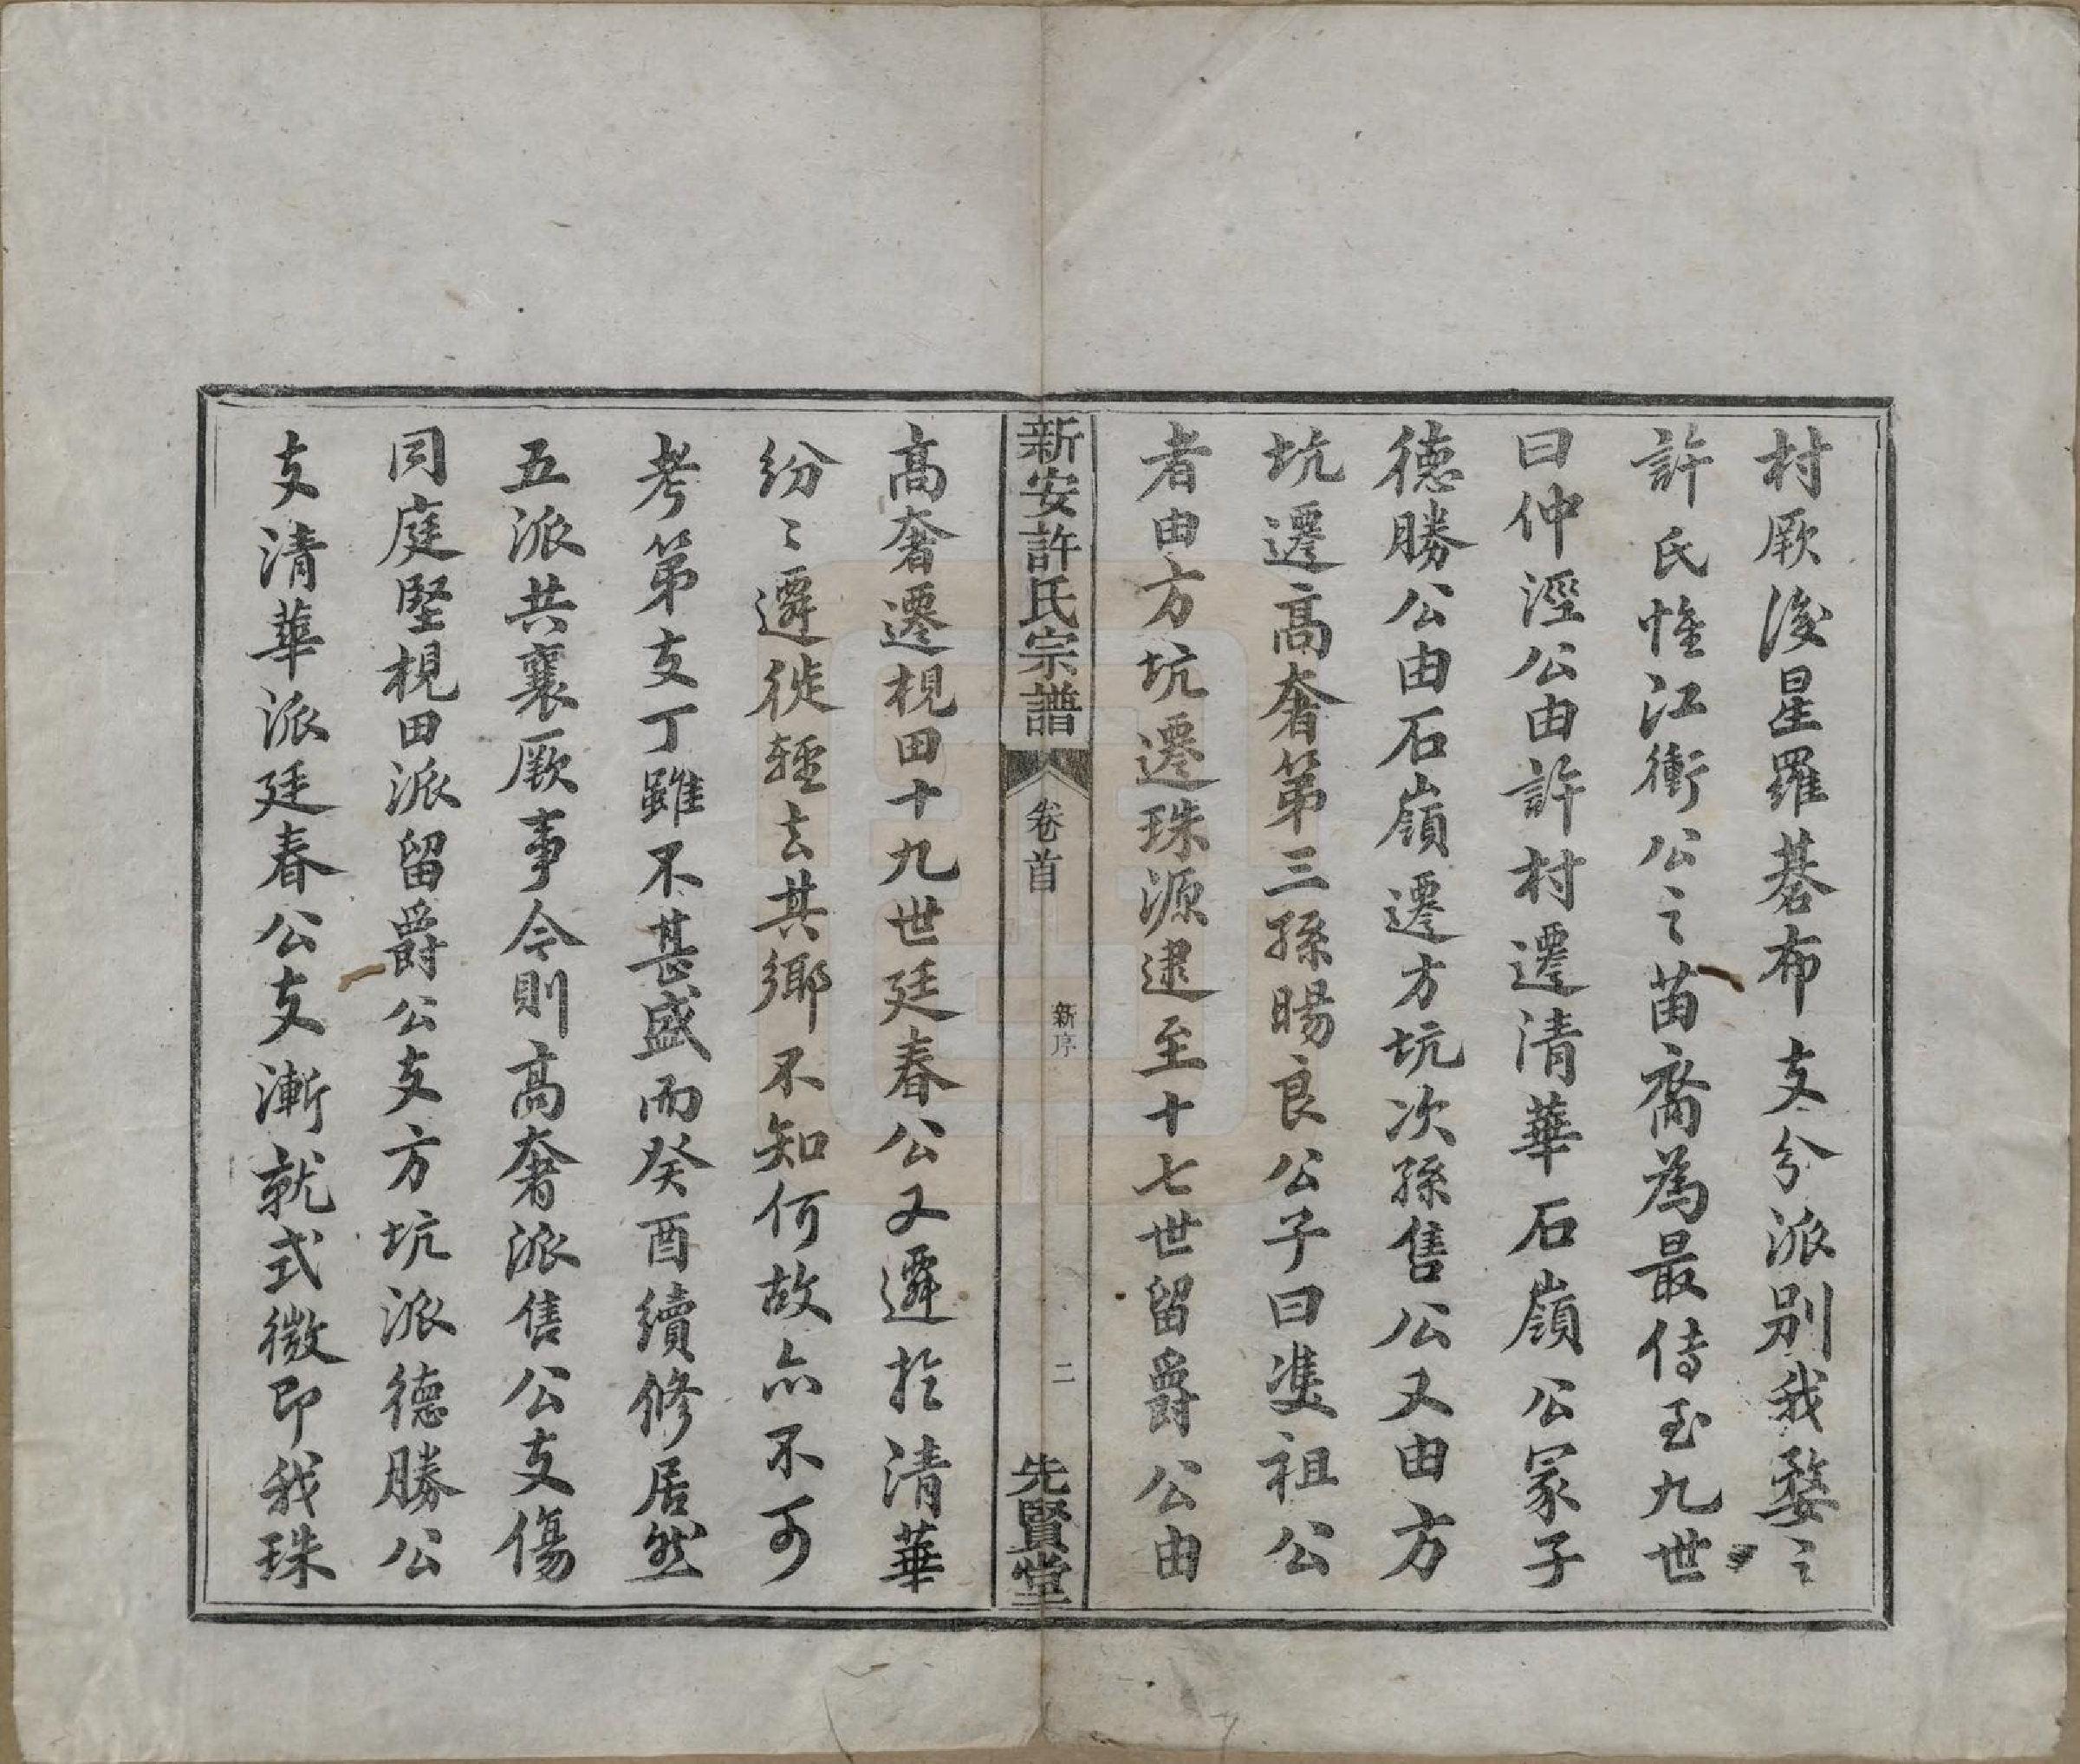 村厥後星羅碁布支分派別我婺之
許氏惟江衝公之苗裔為最傳至九世
曰仲溼公由許村遷清華石嶺公冢子
德勝公由石嶺遷方坑次孫售公又由方
坑遷高奢第三孫暘良公子曰進祖公
者由方坑遷珠源逮至十七世留爵公由
新安許氏宗譜
卷首
新序
二
先賢堂
高奢遷梘田十九世廷春公又遷於清華
紛々遷徙輕去其鄉不知何故亦不可
考第支丁雖不甚盛而癸酉續修居然
五派共襄厥事今則高奢派售公支傷
同庭堅梘田派留爵公支方坑派德勝公
支清華派廷春公支漸就式微即我珠